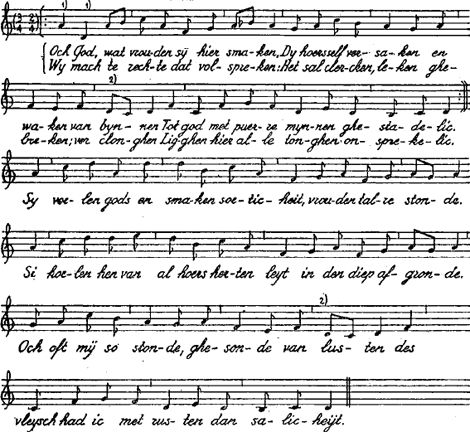 1) 1)
Och God, wat vrou-den sÿ hier sma-ken, Dy hoerself ver-sa-ken en
Wy mach te rech-te dat vol-spre-ken: Het sal cler-cken, le-ken ghe-
2)
wa-ken van byn-nen Tot god met puer-re myn-nen ghe-sta-de-lic.
bre-ken; ver clon-ghen Lig-ghen hier al-le ton-ghen on-spre-ke-lic.
Sy voe-len gods en sma-ken soe-tic-heit, vrou-den tal-re ston-de.
Si koe-len hen van al hoers her-ten leyt in den diep af-gron-de.
2)
Och oft mÿ so ston-de, ghe-son-de van lus-ten des
vleysch had ic met rus-ten dan sa-lic-heÿt.